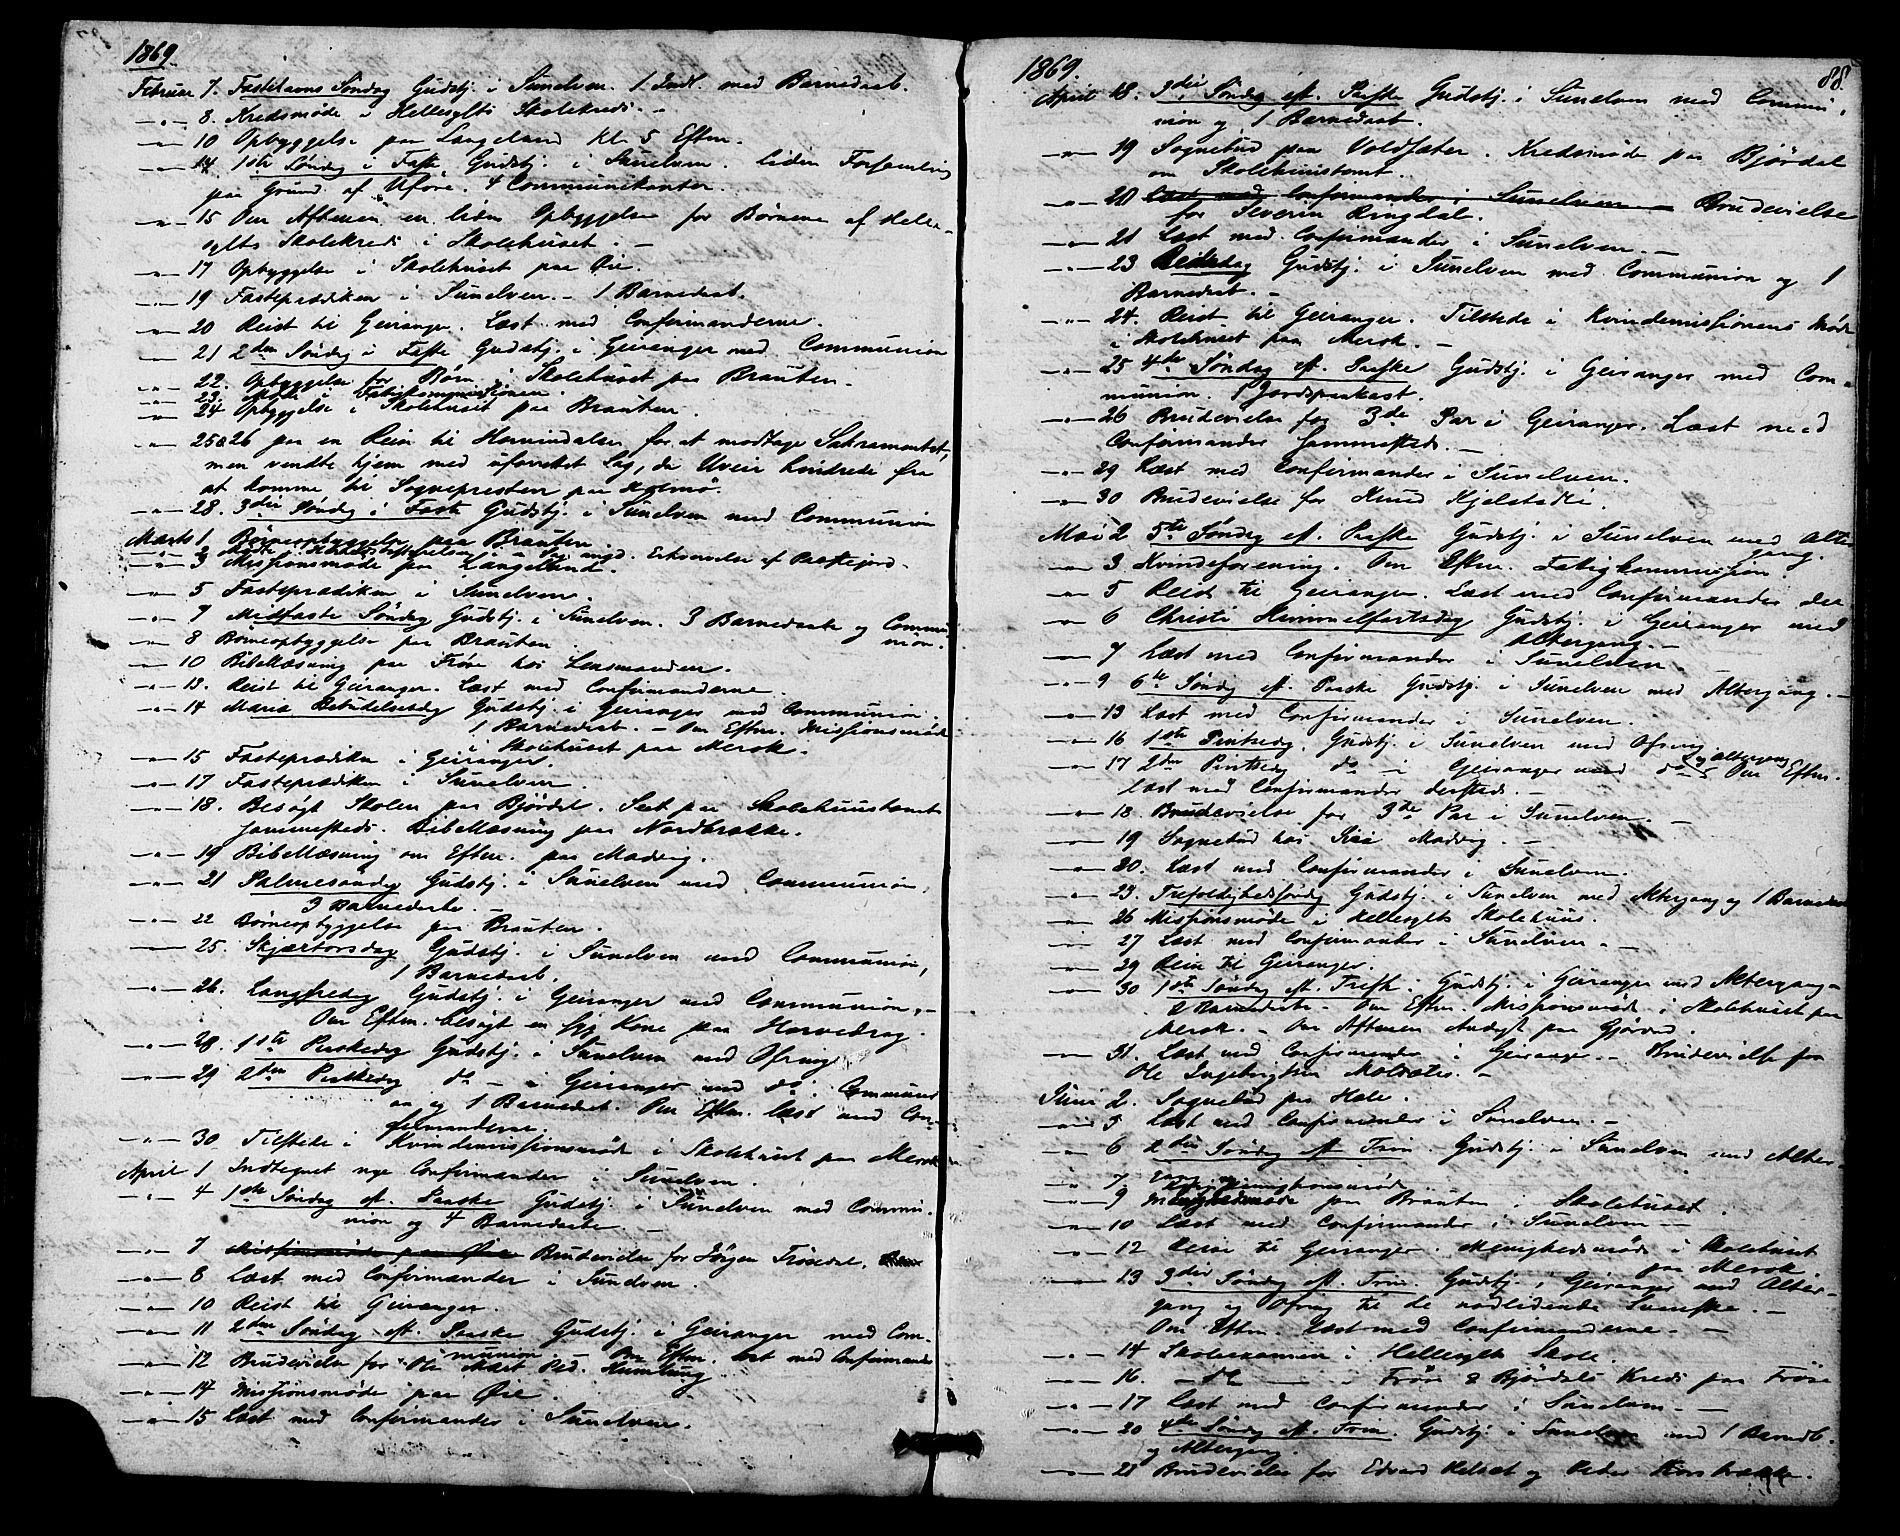 1869.
Februar 7. Fastelavns Söndag Gudstj. i Sunelven. 1 Indl. med Barnedaab.
—„— 8. Kredsmöde i Hellesylts Skolekreds. —
—„— 10 Opbyggelse paa Langeland Kl. 5 Eftm.
—„— 14. 1ste Söndag i Faste Gudstj. i Sunelven. liden Forsamling
paa Grund af Uføre. 4 Communikanter.
—„— 15 Om Aftenen en liden Opbyggelse for Børnene af Helle-
sylts Skolekreds i Skolehuset. —
—„— 17 Opbyggelse i Skolehuset paa Øie.
—„— 19 Fasteprædiken i Sunelven. — 1 Barnedaab.
—„— 20 Reist til Geiranger. Læst med Confirmanderne.
—„— 21 2den Söndag i Faste Gudstj. i Geiranger med Communion
—„— 22. Opbyggelse for Børn i Skolehuset paa Brauten.
—„— 23. Möde i Fattigkommissionen.
—„— 24 Opbyggelse i Skolehuset paa Brauten.
—„— 25 & 26 paa en Reise til Hornindalen for at modtage Sakramentet,
men vendte hjem med uforrettet Sag, da Uveir hindrede fra
at komme til Sognepresten paa Holmö.
—„— 28. 3die Söndag i Faste Gudstj. i Sunelven med Communion
Marts 1 Börneopbyggelse paa Brauten.
—„— 2 Möde i i Sag angd. af
—„— 3 Missionsmöde paa Langeland.
—„— 5 Fasteprædiken i Sunelven.
—„— 7 Midfaste Söndag Gudstj. i Sunelven. 3 Barnedaabe og Commu-
nion.
—„— 8 Börneopbyggelse paa Brauten.
—„— 10 Bibellæsning paa Fröse hos Lensmanden.
—„— 13. Reist til Geiranger. Læst med Confirmanderne.
—„— 14 Maria Bebudelsesdag Gudstj. i Geiranger med Communion.
1 Barnedaab. — Om Eftm. Missionsmöde
i Skolehuset paa Merok.
—„— 15 Fasteprædiken i Geiranger.
—„— 17 Fasteprædiken i Sunelven.
—„— 18. Besögt Skolen paa Björdal. Seet paa Skolehuustomt
sammesteds. Bibellæsning paa Nordbrække.
—„— 19 Bibellæsning om Eftm. paa Madvig.
—„— 21 Palmesöndag Gudstj. i Sunelven med Communion,
3 Barnedaabe. —
—„— 22 Börneopbyggelse paa Brauten.
—„— 25. Skjærtorsdag Gudstj. i Sunelven med Communion,
1 Barnedaab.
—„— 26. Langfredag Gudstj. i Geiranger med Communion. —
Om Eftm. besögt en syg Kone paa Horvedrag.
—„— 28. 1ste Paaskedag Gudstj. i Sunelven med Ofring
—„— 29 2den Paaskedag do — i Geiranger med do. Communi-
on og 1 Barnedaab. Om Eftm. læst med Con-
firmanderne.
—„— 30 Tilstede i Kvindemissionsmöde i Skolehuset paa Merok
April 1 Indtegnet nye Confirmander i Sunelven.
—„— 4 1ste Söndag eft. Paaske Gudstj. i Sunelven med Commu-
nion og 4 Barnedaabe. —
—„— 7 Missionsmöde paa Øie Brudevielse for Jörgen Trönedal.
—„— 8 Læst med Confirmander i Sunelven.
—„— 10 Reist til Geiranger.
—„— 11 2den Söndag eft. Paaske Gudstj. i Geiranger med Com-
munion. Om Eftm. læst med Confirmander
—„— 12 Brudevielse for Ole Ped. Humlung.
—„— 14 Missionsmöde paa Øie.
—„— 15 Læst med Confirmander i Sunelven.
1869. 88.
April 18. 3die Söndag eft. Paaske Gudstj. i Sunelven med Commu-
nion og 1 Barnedaab.
—„— 19 Sognebud paa Voldsæter. Kredsmöde paa Björdal
om Skolehuustomt.
—„— 20 Læst med Confirmander i Sunelven — Brudevielse
for Severin Ringdal.
—„— 21 Læst med Confirmander i Sunelven. —
—„— 23 Bededag Gudstj. i Sunelven med Communion og 1
Barnedaab. —
—„— 24. Reist til Geiranger. Tilstede i Kvindemissionens Möde
i Skolehuset paa Merok. —
—„— 25 4de Söndag eft. Paaske Gudstj. i Geiranger med Com-
munion. 1 Jordspaakast.
—„— 26 Brudevielse for 3de Par i Geiranger. Læst med
Confirmander sammesteds. —
—„— 29 Læst med Confirmander i Sunelven.
—„— 30 Brudevielse for Knud Kjelstadli.
Mai 2 5te Söndag eft. Paaske Gudstj. i Sunelven med Alter-
gang.
—„— 3 Kvindeforening. Om Eftm. Fatigkommission.
—„— 5 Reist til Geiranger. Læst med Confirmander der
—„— 6 Christi Himmelfartsdag Gudstj. i Geiranger med
Altergang. —
—„— 7 Læst med Confirmander i Sunelven. —
—„— 9 6te Söndag eft. Paaske Gudstj. i Sunelven med Altergang. —
—„— 13 Læst med Confirmander i Sunelven.
—„— 16 1ste Pintsedag. Gudstj. i Sunelven med Ofring og Altergang
—„— 17 2den Pintsedag do — i Geiranger med do Om Eftm.
læst med Confirmander dersteds. —
—„— 18. Brudevielse for 3de Par i Sunelven. —
—„— 19 Sognebud hos Madvig. —
—„— 20. Læst med Confirmander i Sunelven.
—„— 23. Trefoldighedssöndag Gudstj. i Sunelven med Altergang og 1 Barnedaab
—„— 26 Missionsmöde i Hellesylts Skolehuus.
—„— 27 Læst med Confirmander i Sunelven. —
—„— 29 Reise til Geiranger.
—„— 30 1ste Söndag eft. Trefh. Gudstj. i Geiranger med Altergang —
2 Barnedaabe — Om Eftm. Missionsmöde i Skolehuset paa
Merok. — Om Aftenen Andagt paa Gjörvad.
—„— 31. Læst med Confirmander i Geiranger. — Brudevielse for
Ole Ingebrigtsen Molsæter. —
Juni 2. Sognebud paa Hole.
—„— 5 Læst med Confirmander i Sunelven. —
—„— 6 2den Söndag eft. Trin. Gudstj. i Sunelven med Alter-
—„— 7.
—„— 9 Menighedsmöde paa Brauten i Skolehuset.
—„— 10 Læst med Confirmander i Sunelven —
—„— 12 Reise til Geiranger. Menighedsmöde i Skolehuset
paa Merok
—„— 13 3die Söndag eft. Trin. Gudstj. i Geiranger med Alter-
gang og Ofring til de nödlidende Svenske. —
Om Eftm. Læst med Confirmanderne. —
—„— 14 Skoleexamen i Hellesylts Skole.
—„— 16. — do — i Fröse & Björdals Kreds paa Fröse
—„— 17 Læst med Confirmander i Sunelven — —
—„— 20 4de Söndag eft. Trin. Gudstj. i Sunelven med 1 Barnedb.
og Altergang.
—„— 21 Brudevielse for Edvard og Peder Korsbrække.